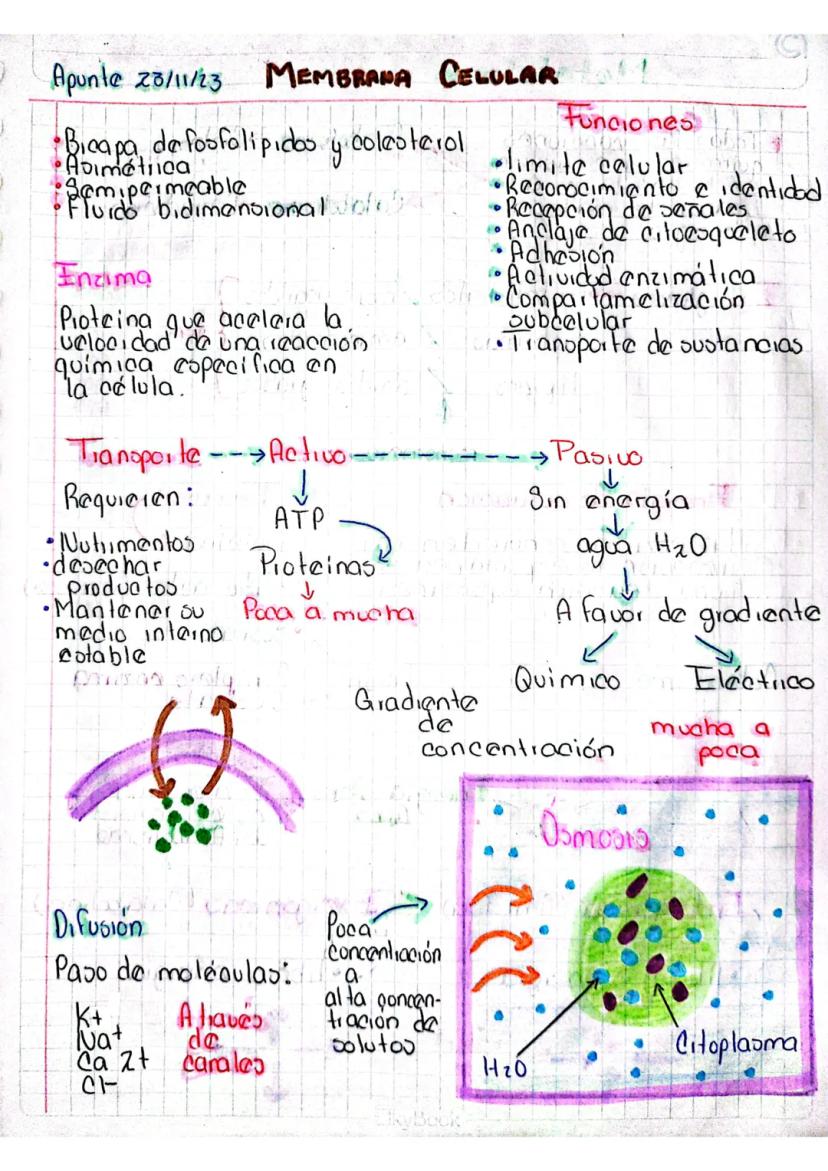 Apunte 23/11/23 MEMBRANA CELULAR
• Bicapa de fosfolípidos y colesterol
• Asimétrica
• Semipermeable
• Fluido bidimensional
Funciones
• límite celular
• Reconocimiento e identidad
• Recepción de señales
• Anclaje de citoesqueleto
• Adhesión
• Actividad enzimática
• Compartamelización
subcelular
• Transporte de sustancias
Enzima
Proteína que acelera la
velocidad de una reacción
química específica en
la célula.
Transporte --→ Activo -----→ Pasivo
Requieren:
• Nutrimentos
• desechar
productos
• Mantener su
medio interno
estable
ATP
Proteínas
Poca a mucha
Sin energía
agua H2O
A favor de gradiente
Químico Eléctrico
Gradiente
de
concentración
mucha a
poca
Ósmosis
Difusión
Paso de moléculas:
K+
Na+
Ca 2+
Cl-
A través
de
canales
Poca
concentración
a
alta concen-
tración de
solutos
H2O
Citoplasma